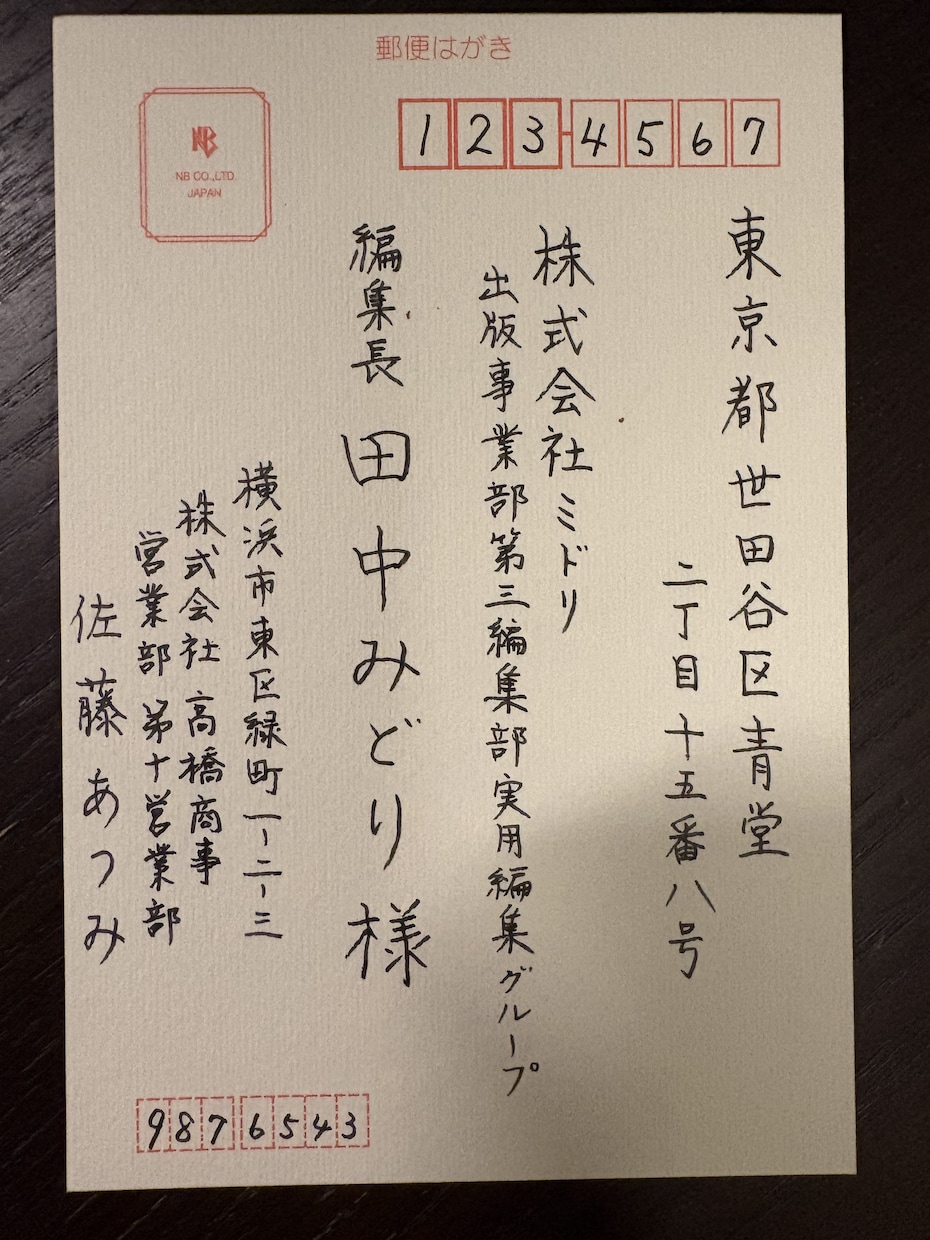 郵便はがき
123-4567
NB
NB CO.,LTD.
JAPAN
東京都世田谷区青堂
二丁目十五番八号
株式会社ミドリ
出版事業部第三編集部実用編集グループ
編集長 田中みどり様
横浜市東区緑町一-二-三
株式会社 高橋商事
営業部 第十営業部
佐藤あつみ
9876543